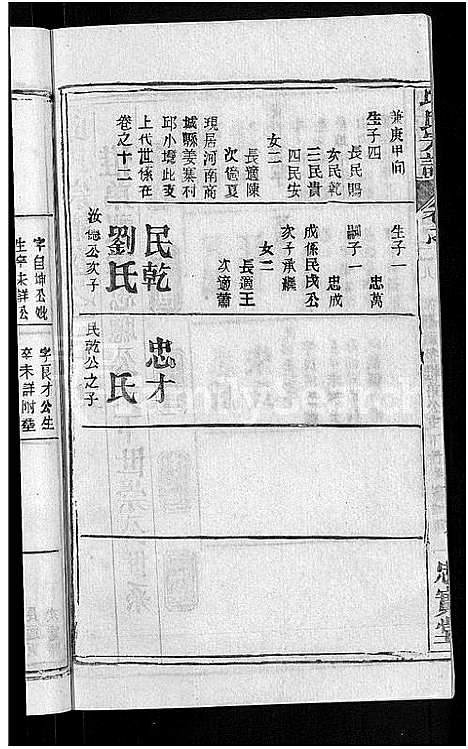 兼庚甲向
生子四
長民賜
女民乾
三民貴
四民安
女二
長適陳
次適夏
現居河南商
城縣姜寨村
邱小塆此支
上代世係在
卷之十二
生子一
忠萬
嗣子一
忠成
成係民戌公
次子承繼
女二
長適王
次適蕭
民乾
劉氏
汝德公次子
忠才
氏
民乾公之子
忠實堂
字自坤公妣
生卒未詳公
字良才公生
卒未詳附塟